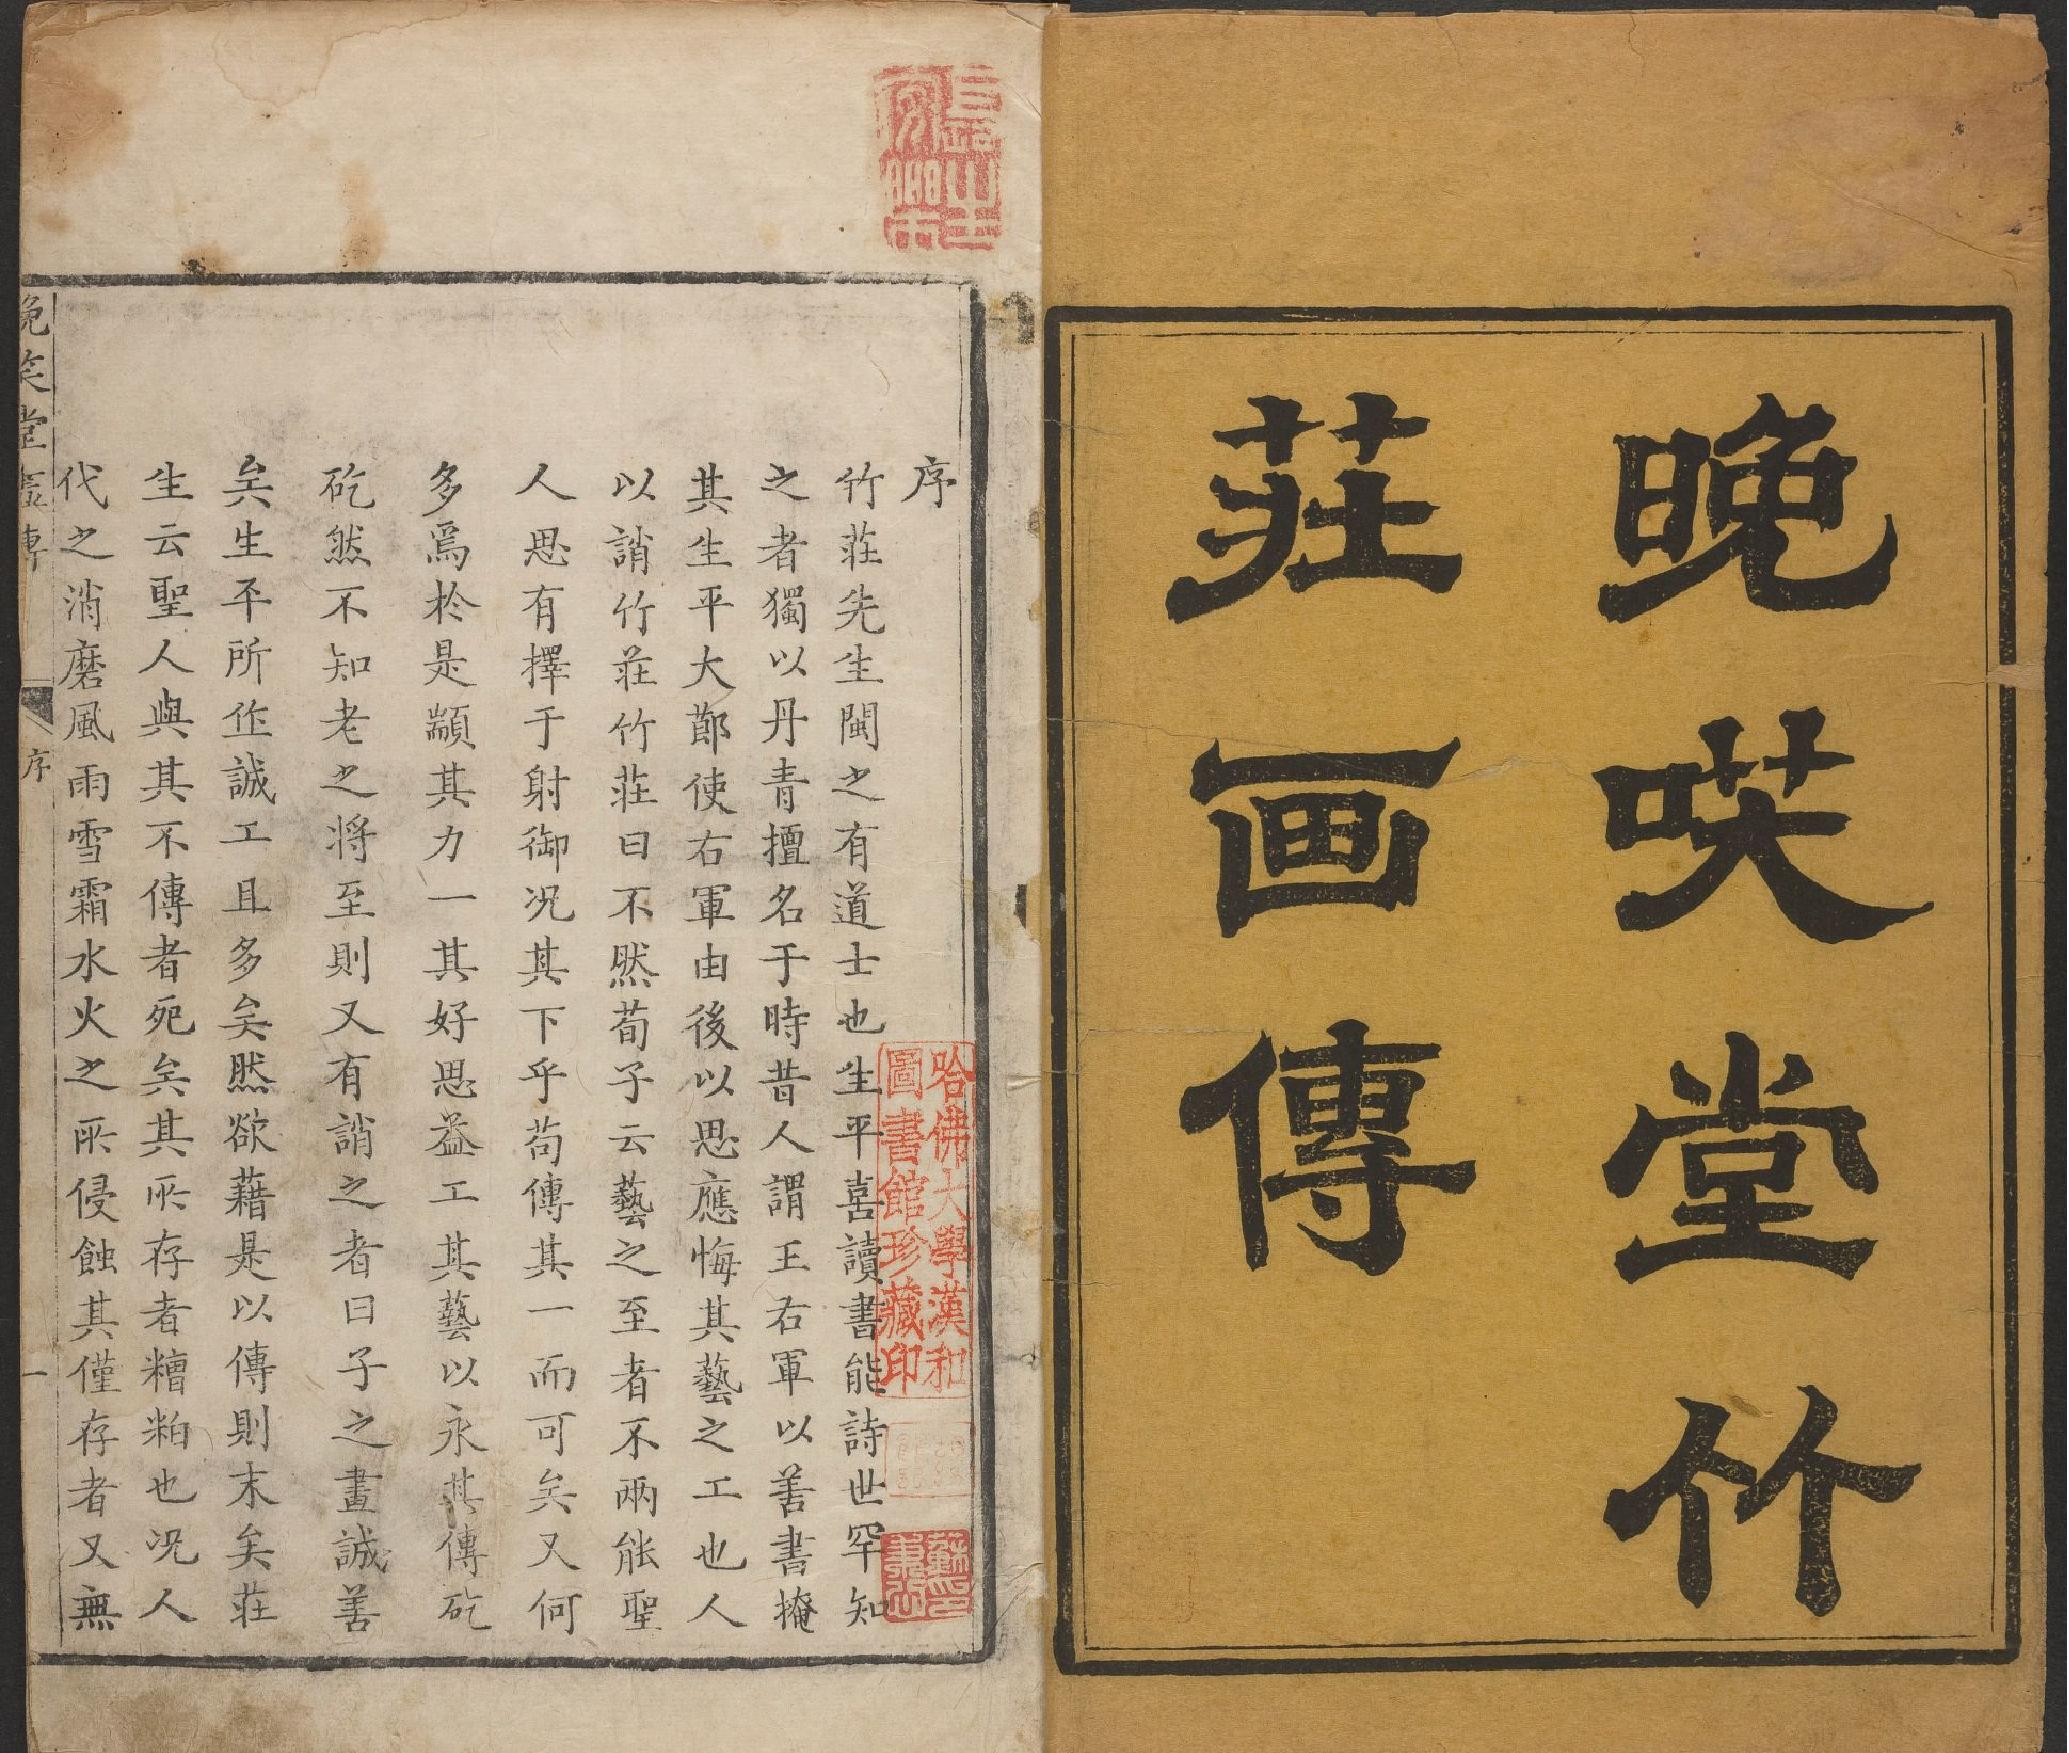 晚唉堂竹
莊画傳
序
竹莊先生閩之有道士也生平喜讀書能詩世罕知
之者獨以丹青擅名于時昔人謂王右軍以善書掩
其生平大節使右軍由後以思應悔其藝之工也人
以誚竹莊竹莊曰不然荀子云藝之至者不兩能聖
人思有擇于射御况其下乎苟傳其一而可矣又何
多焉於是顓其力一其好思益工其藝以永其傳矻
矻然不知老之将至則又有誚之者曰子之畫誠善
矣生平所作誠工且多矣然欲藉是以傳則末矣莊
生云聖人與其不傳者死矣其所存者糟粕也况人
代之消磨風雨雪霜水火之所侵蝕其僅存者又無
晚笑堂畫傳
序
一
哈佛大學漢和
圖書館珍藏印